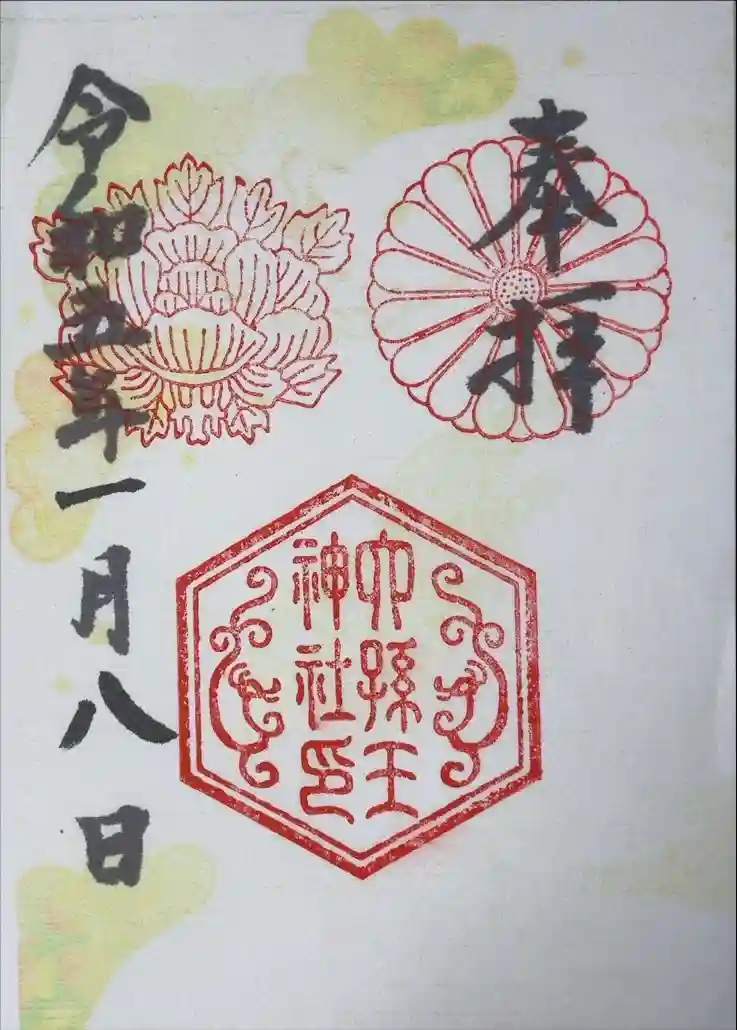 奉拝
六孫王
神社印
令和五年一月八日